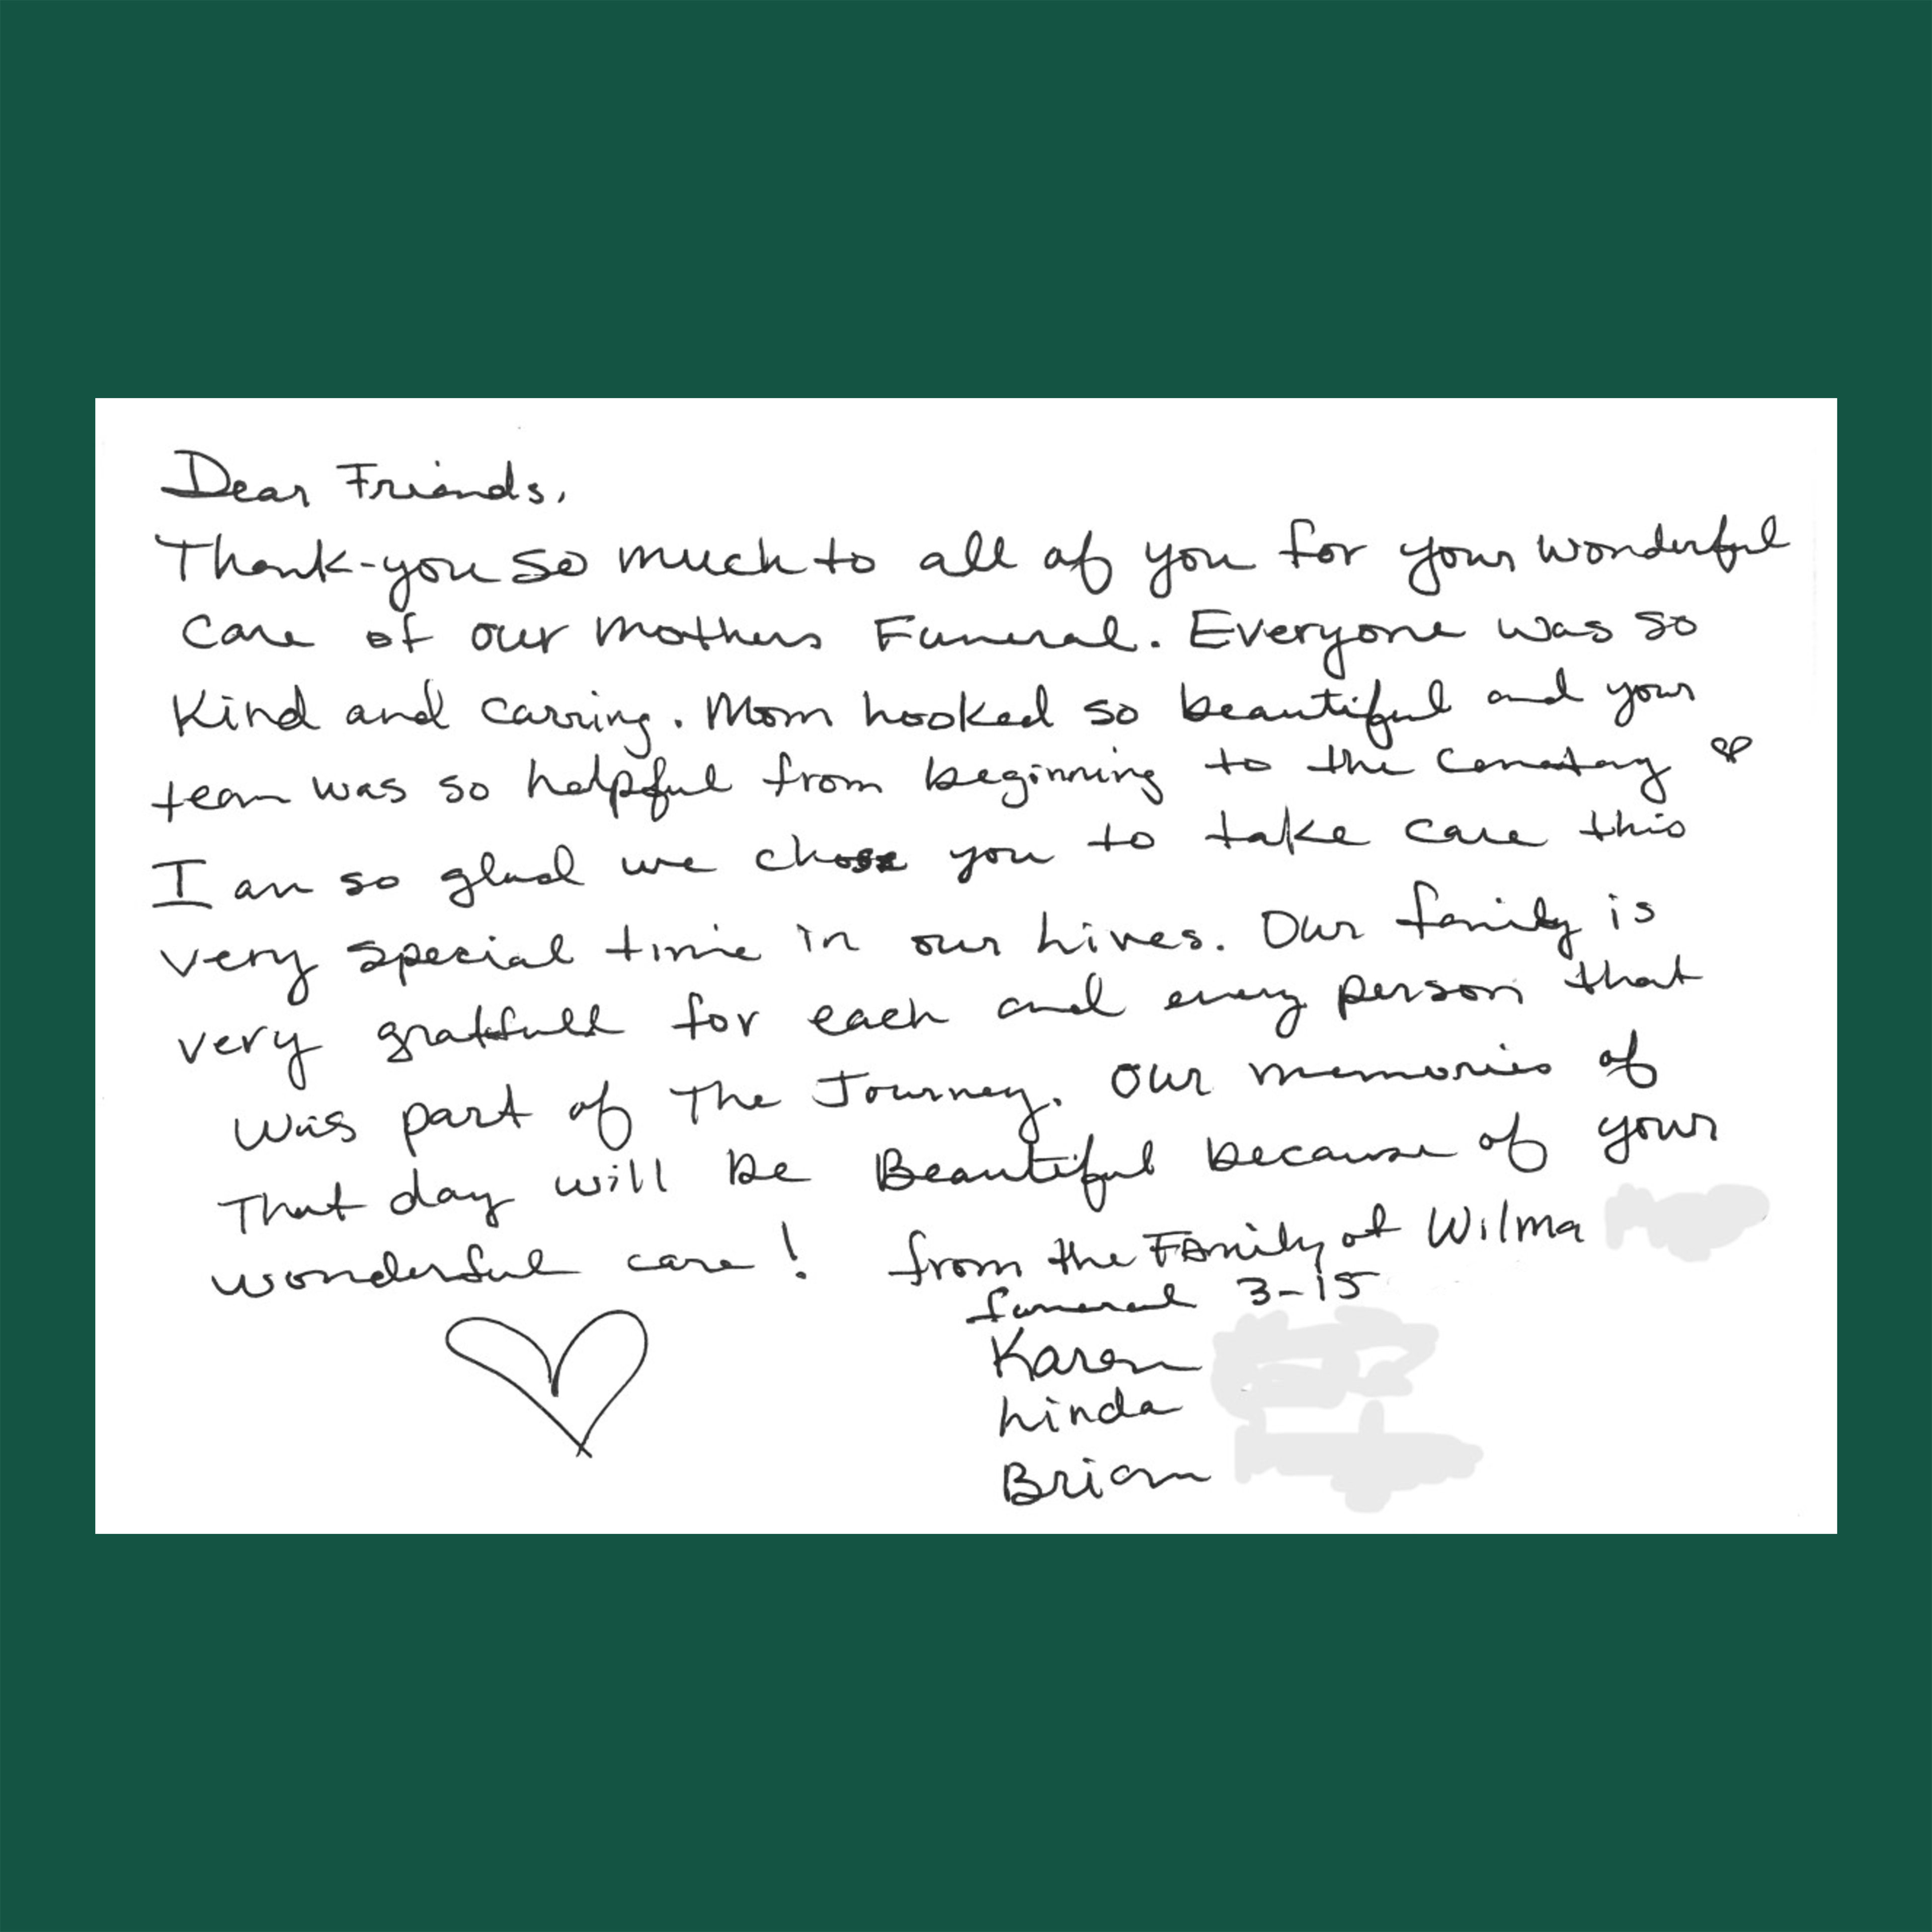 Dear Friends,
Thank-you so much to all of you for your wonderful
Care of our mothers Funeral. Everyone was so
Kind and carring. Mom Looked so beautiful and your
team was so helpful from beginning to the Cematary
I am so glad we chose you to take care this
very special time in our Lives. Our family is
very gratfull for each and every person that
was part of The Journey. Our memories of
That day will be Beautiful because of your
wonderful care! from the Family of Wilma
funeral 3-15
Karen
Linda
Brian